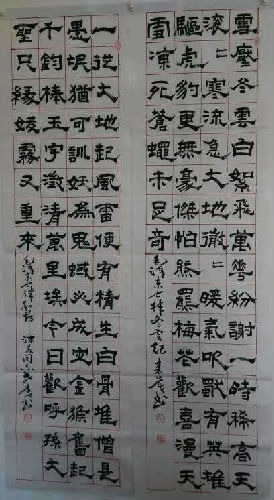 雪壓冬雲白絮飛萬花紛謝一時稀高天
滚〻寒流急大地微〻暖氣吹獨有英雄
驅虎豹更無豪傑怕熊羆梅花歡喜漫天
雪凍死蒼蠅未足奇 毛澤東七律冬雲
一從大地起風雷便有精生白骨堆僧是
愚氓猶可訓妖為鬼蜮必成災金猴奮起
千鈞棒玉宇澄清萬里埃今日歡呼孫大
聖只緣妖霧又重來 毛澤東七律和郭沫若同志